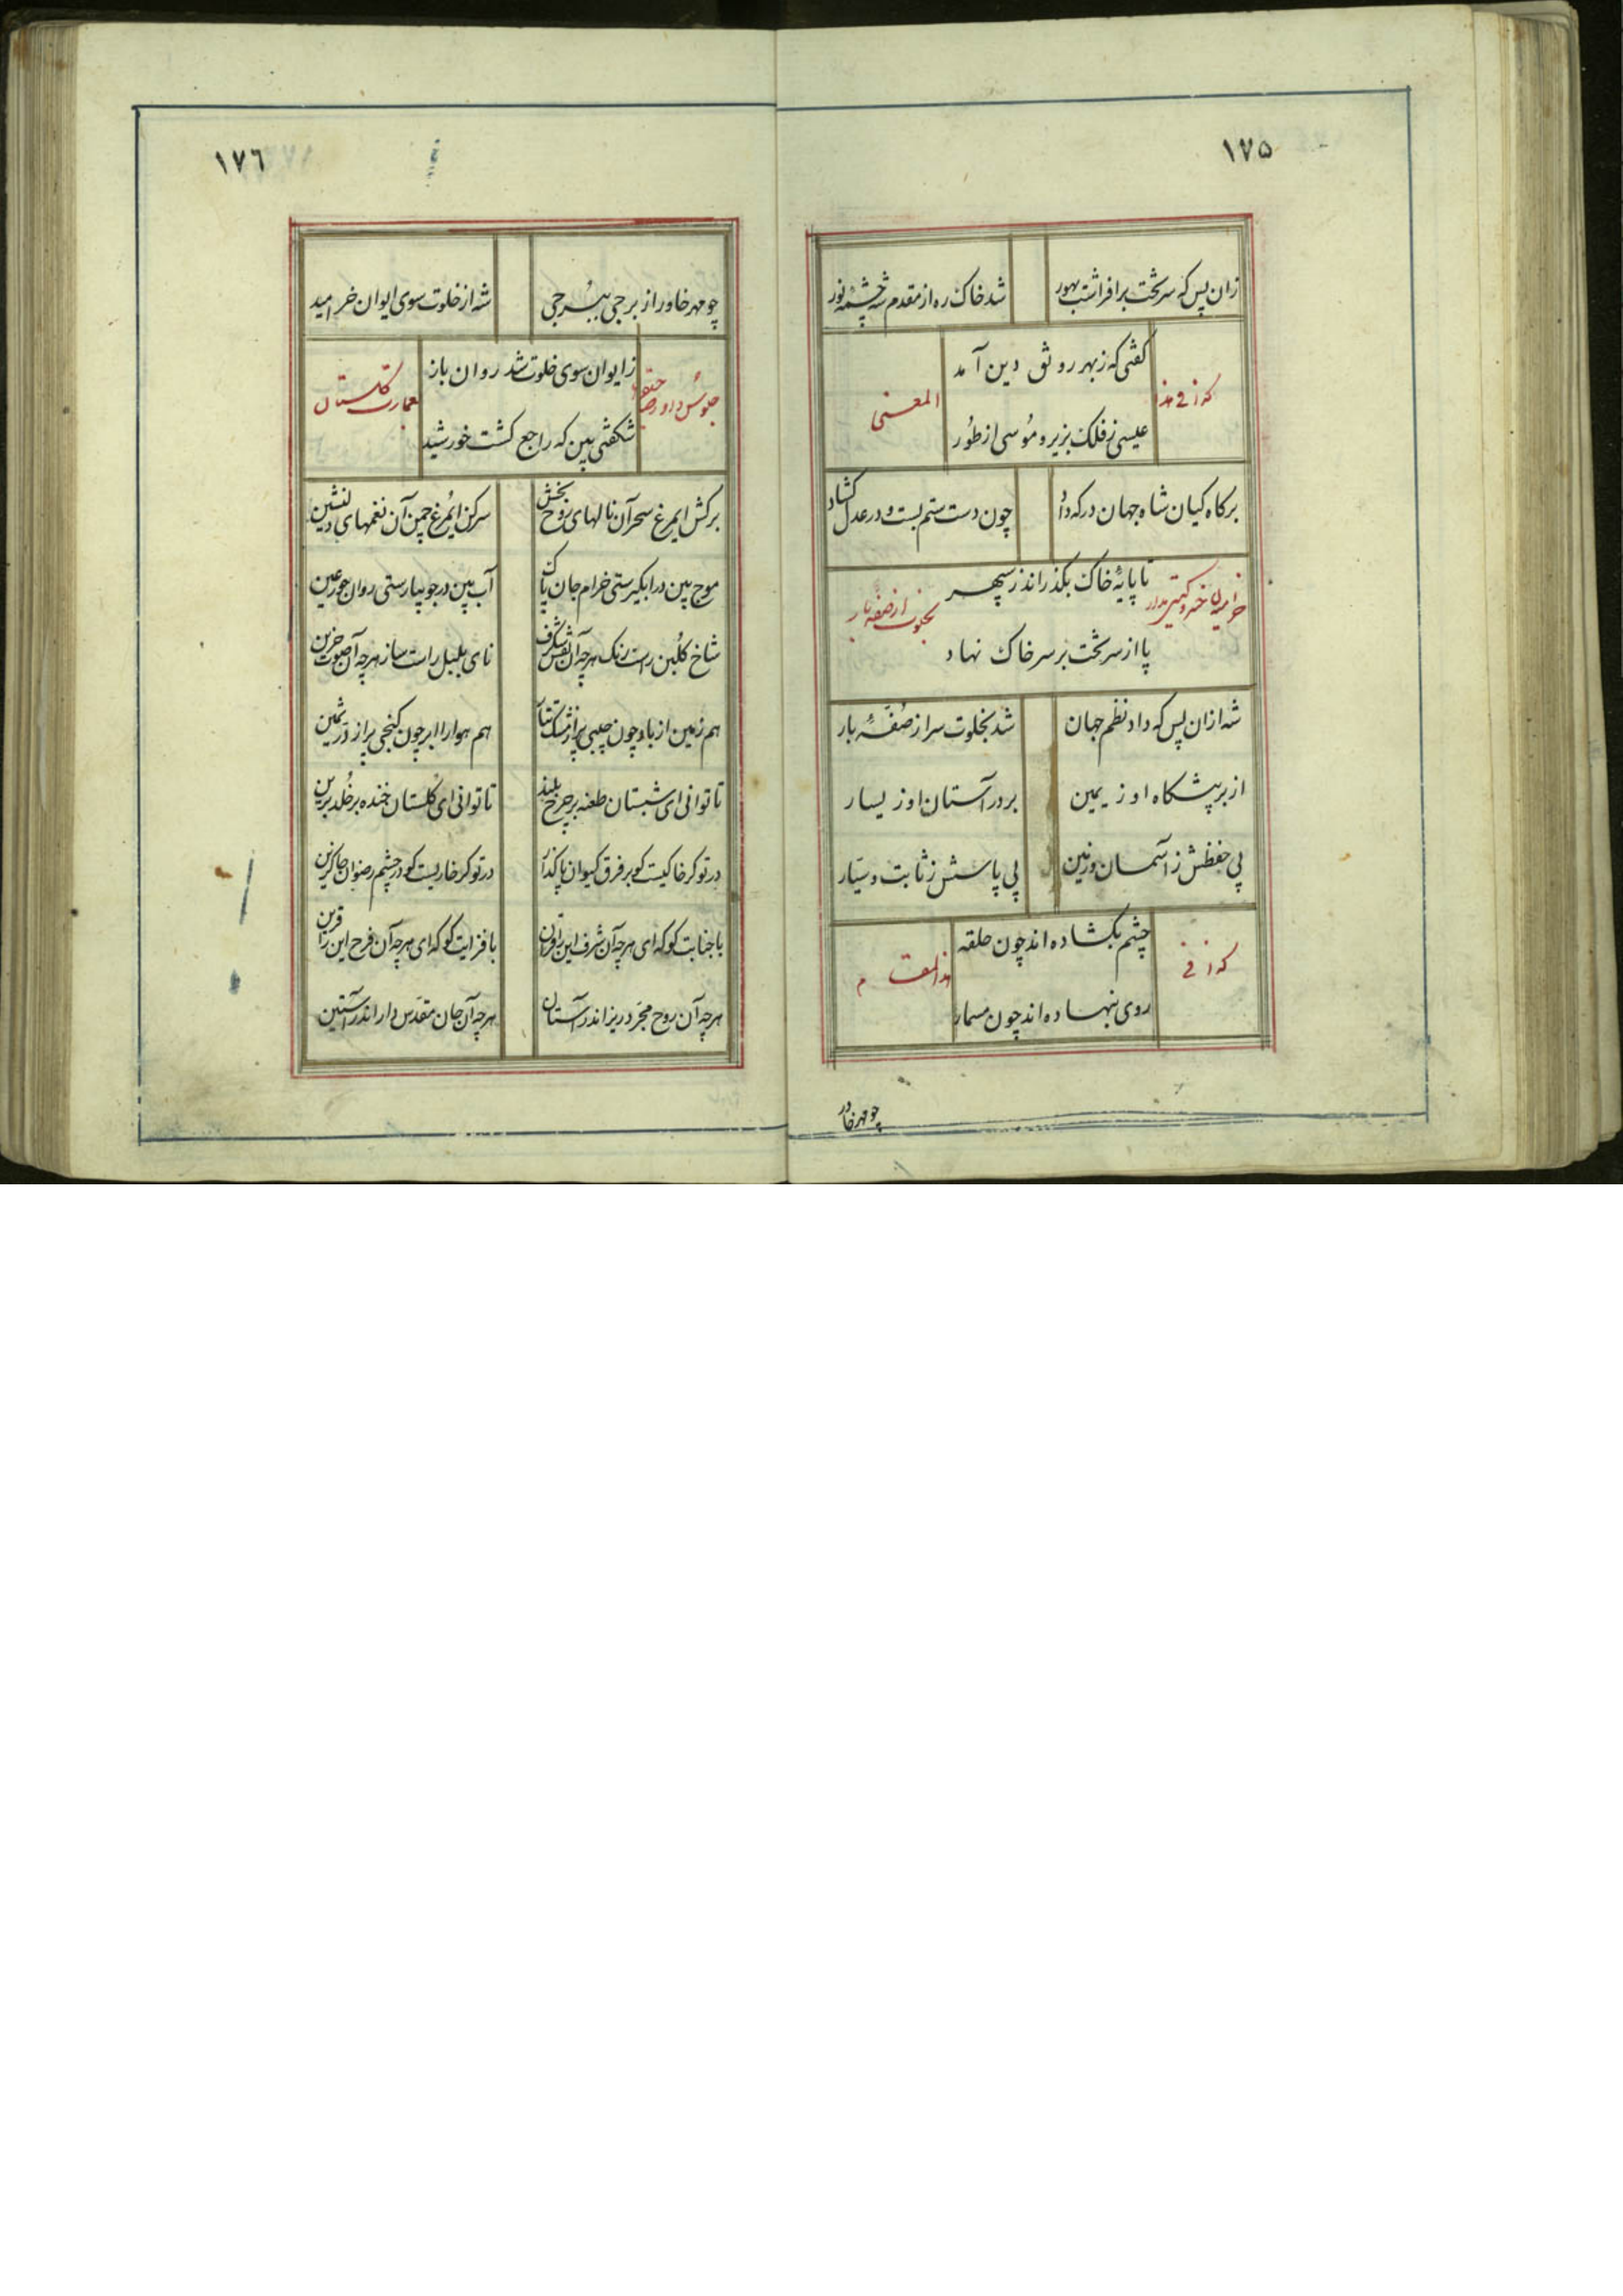 ۱۷۵
زان پس که سر تخت برافراشت بهور شد خاک ره از مقدم شه چشمهٔ نور
گفتی که ز بهر رونق دین آمد
وله فی هذا المعنی
عیسی ز فلک بزیر و موسی از طُور
برکاه کیان شاه جهان درکه داد چون دست ستم بست و در عدل کشاد
تا پایهٔ خاک بگذراند ز سپهر
خرامیدن خسرو بخلوت از صفهٔ بار
پا از سر تخت بر سر خاک نهاد
شه ازان پس که داد نظم جهان شد بخلوت سرا ز صُفّهٔ بار
از بر پیشگاه او ز یمین بر در آستان او ز یسار
پی حفظش ز آسمان و زمین پی پاسش ز ثابت و سیّار
چشم بکشاده اند چون حلقه
وله فی
روی بنهاده اند چون مسمار
چو مهر خاور
۱۷٦
چو مهر خاور از برجی ببُرجی شه از خلوت سوی ایوان خرامید
ز ایوان سوی خلوت شد روان باز
جلوس داور بعمارت کلستان
شکفتی بین که راجع کشت خورشید
برکش ای مرغ سحر آن نالهای روح بخش سرکن ای مرغ چمن آن نغمهای دلنشین
موج بین در آبگیرستی خرام جان پاک آب بین در جویبارستی روان حور عین
شاخ کلبن راست رنک هر چه آن نقش شکرف نای بلبل راست ساز هر چه آن صوت حزین
هم زمین از باد چون جیبی پر از مشک تتار هم هوا را ابر چون کنجی پر از درّ ثمین
تا توانی ای شبستان طعنه بر چرخ بلند تا توانی ای کلستان خنده بر خُلد برین
در تو کر خاکیست کو بر فرق کیوان پا کذار در تو کر خاریست کو در چشم رضوان جا کزین
با جنابت کو که ای هر چه آن شرف این را قران با فزایت کو که ای هر چه آن فرح این را قرین
هر چه آن روح مجرّد ریز اندر آستان هر چه آن جان مقدّس دار اندر آستین